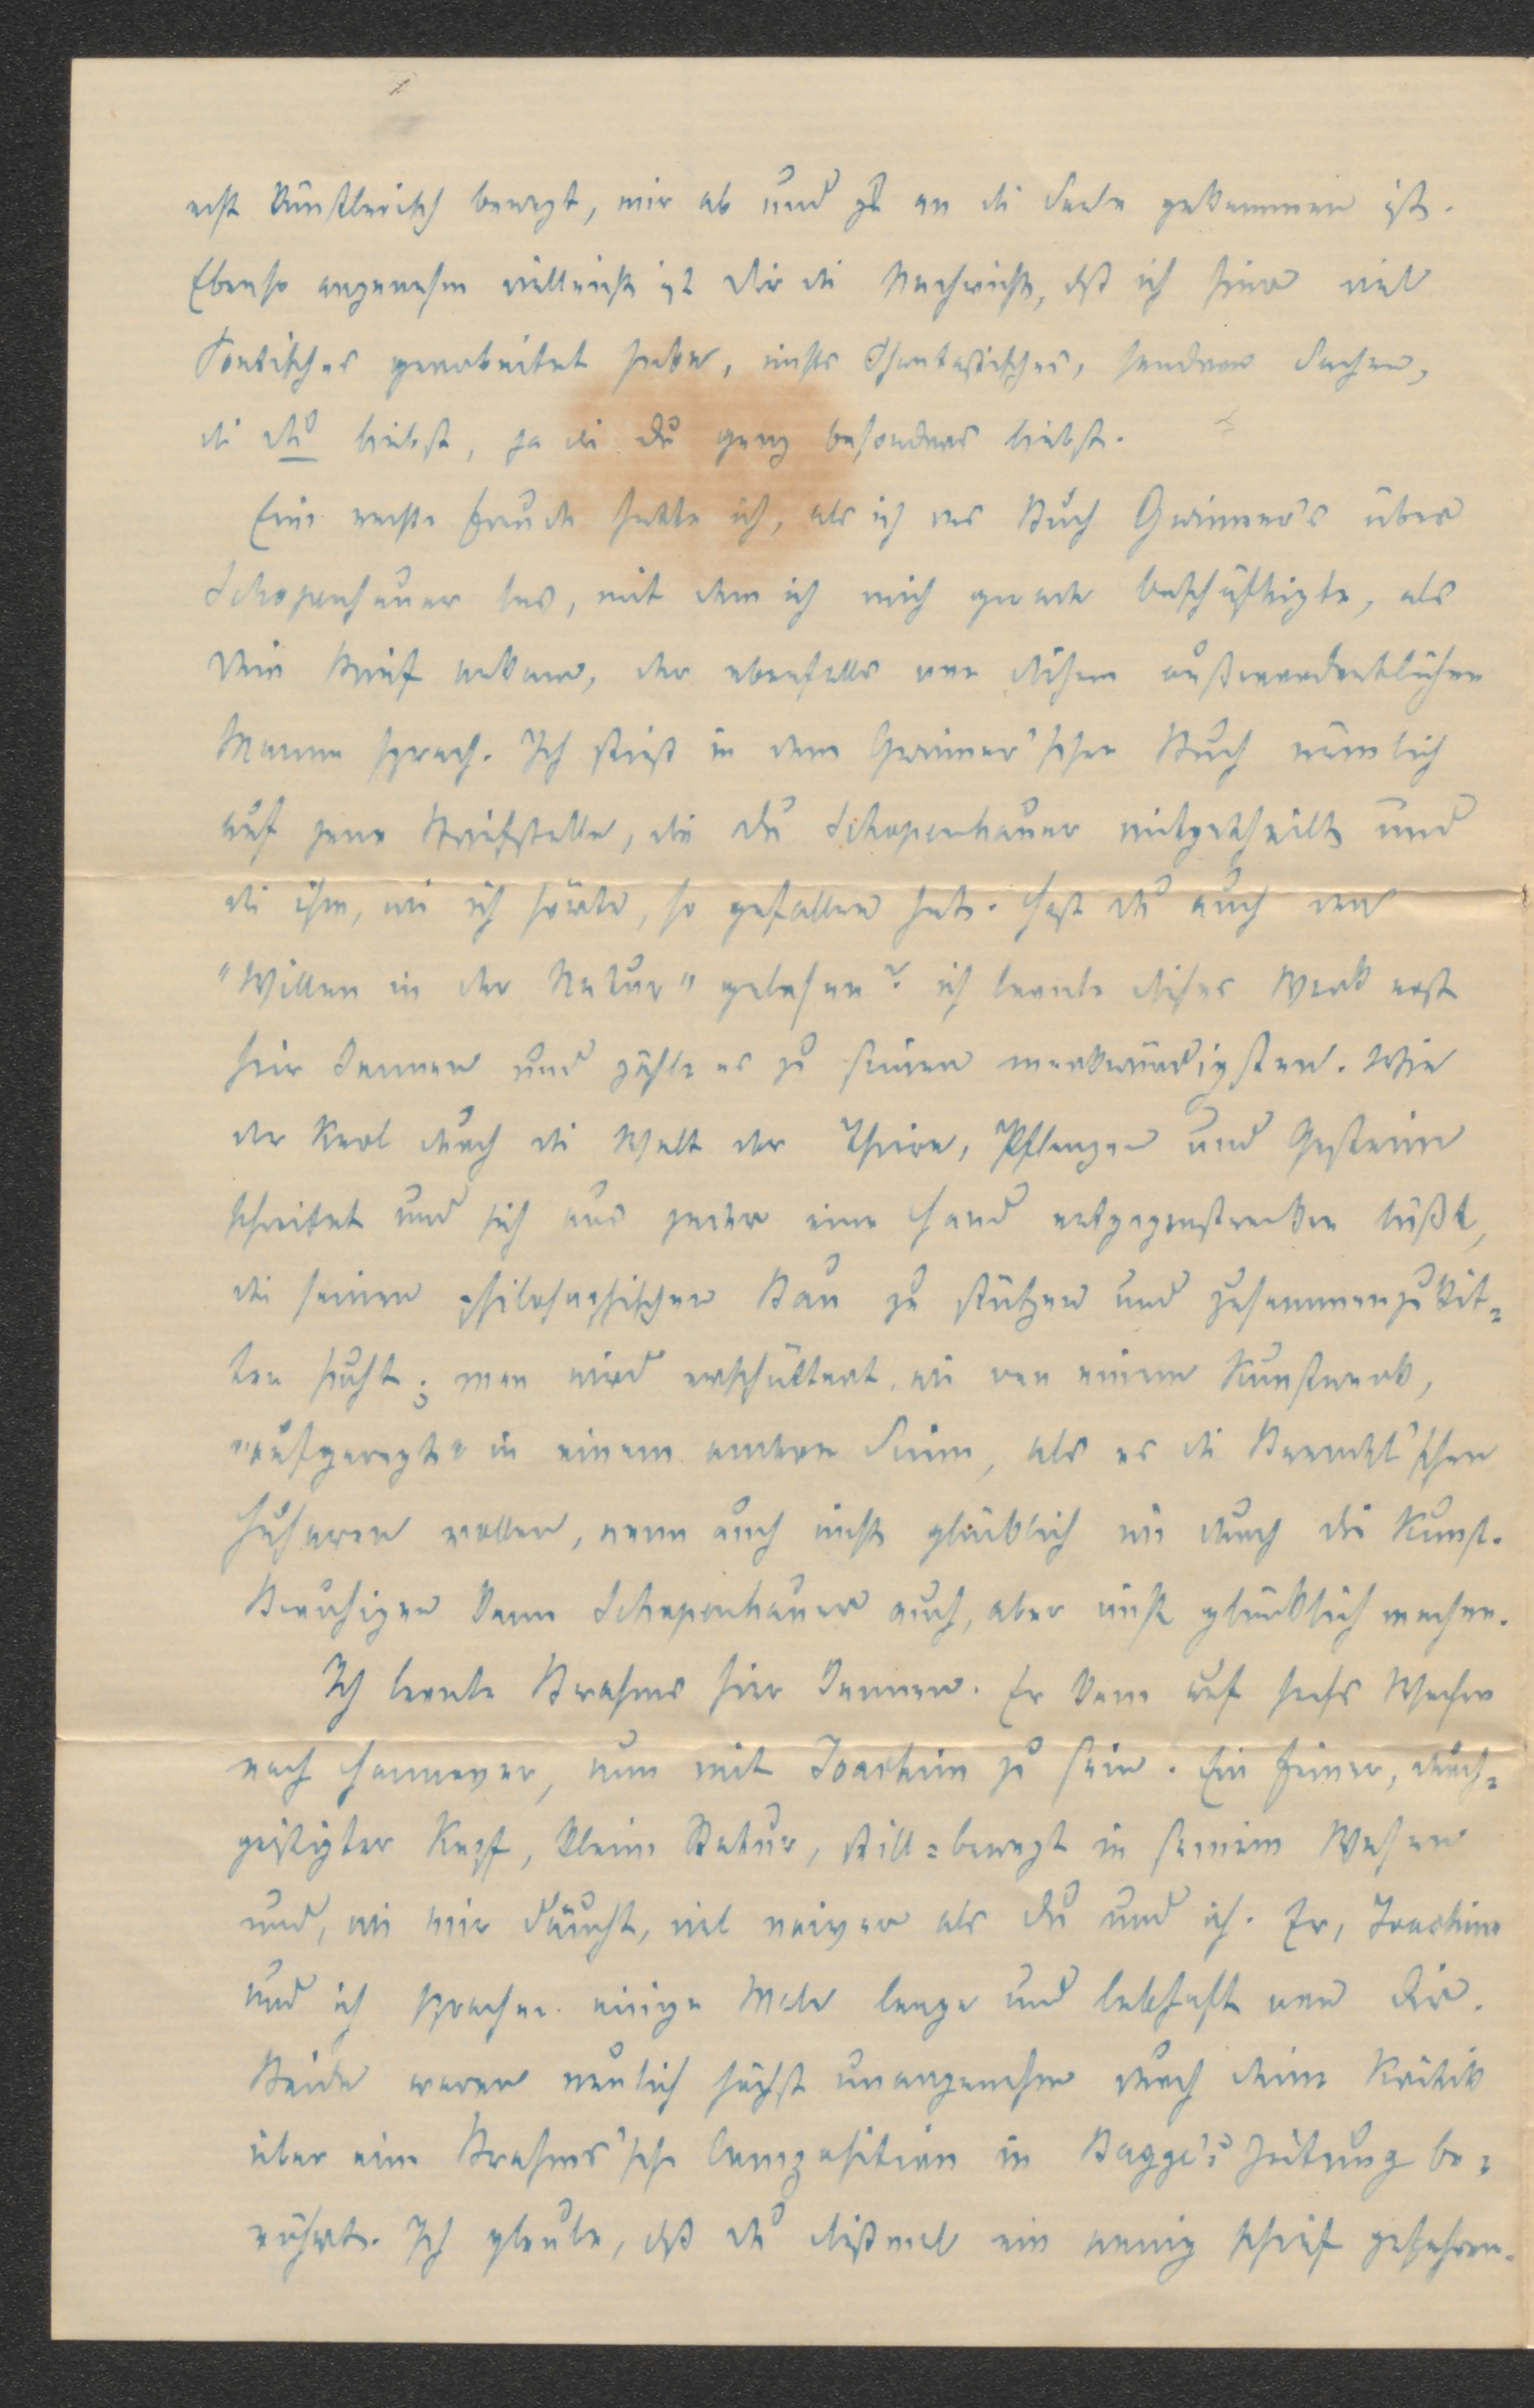 echt künstlerisch bewegt, mir ab und zu an die Seele gekommen ist.
Ebenso angenehm vielleicht ist dir die Nachricht, daß ich hier viel
Poetisches gearbeitet habe, nichts Phantastisches, sondern Sachen,
die du liebst, ja die du ganz besonders liebst.
Eine rechte Freude hatte ich, als ich das Buch Gwinner's über
Schopenhauer las, mit dem ich mich gerade beschäftigte, als
dein Brief ankam, der ebenfalls von diesem außerordentlichen
Manne sprach. Ich stieß in dem Gwinner'schen Buch nämlich
auf jene Briefstelle, die du Schopenhauer mitgetheilt und
die ihm, wie ich hörte, so gefallen hat. Hast du auch den
"Willen in der Natur" gelesen? ich lernte dieses Werk erst
hier kennen und zähle es zu seinen merkwürdigsten. Wie
der Kerl durch die Welt der Thiere, Pflanzen und Gesteine
schreitet und sich aus jeder eine Hand entgegenstrecken läßt,
die seinen philosophischen Bau zu stützen und zusammenzukit=
ten sucht; man wird erschüttert, wie von einem Kunstwerk,
"aufgeregt" in einem andern Sinn, als es die Brendel'schen
Husaren wollen, wenn auch nicht glücklich wie durch die Kunst.
Beruhigen kann Schopenhauer auch, aber nicht glücklich machen.
Ich lernte Brahms hier kennen. Er kam auf sechs Wochen
nach Hannover, um mit Joachim zu sein. Ein feiner, durch=
geistigter Kopf, kleine Statur, still=bewegt in seinem Wesen
und, wie mir däucht, viel naiver als du und ich. Er, Joachim
und ich sprachen einige Male lange und lebhaft von dir.
Beide waren neulich höchst unangenehm durch deine Kritik
über eine Brahms'sche Composition in Bagge's Zeitung be=
rührt. Ich glaube, daß du dießmal ein wenig schief gefahren